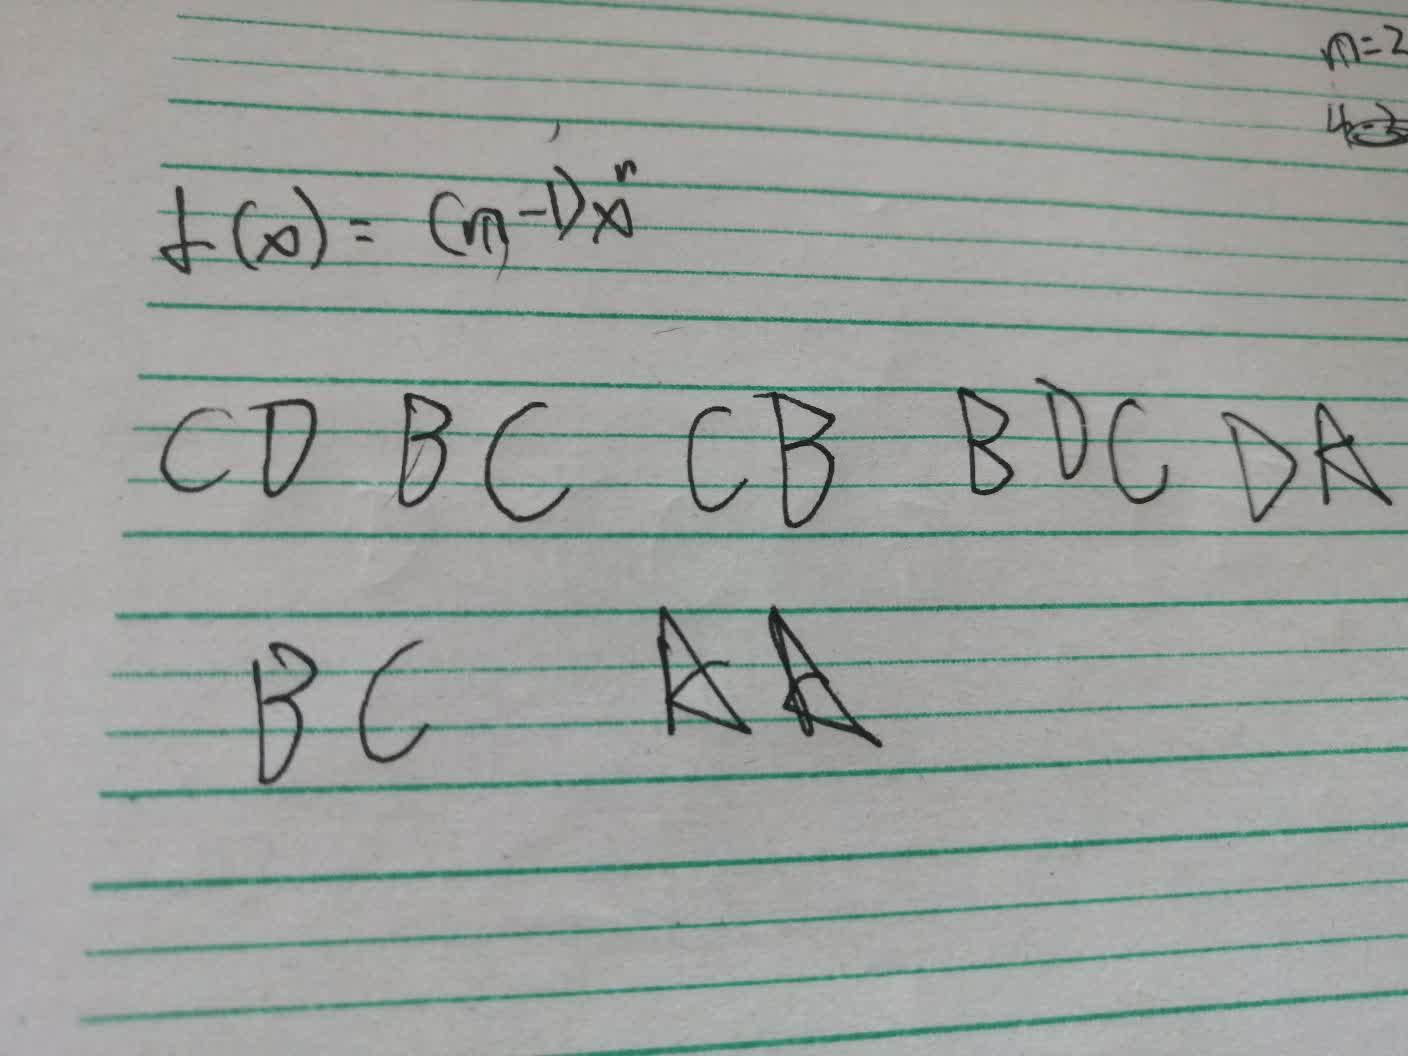 m=2
f(x)=(m-1)xⁿ
CD BC CB BDC DA
BC AA